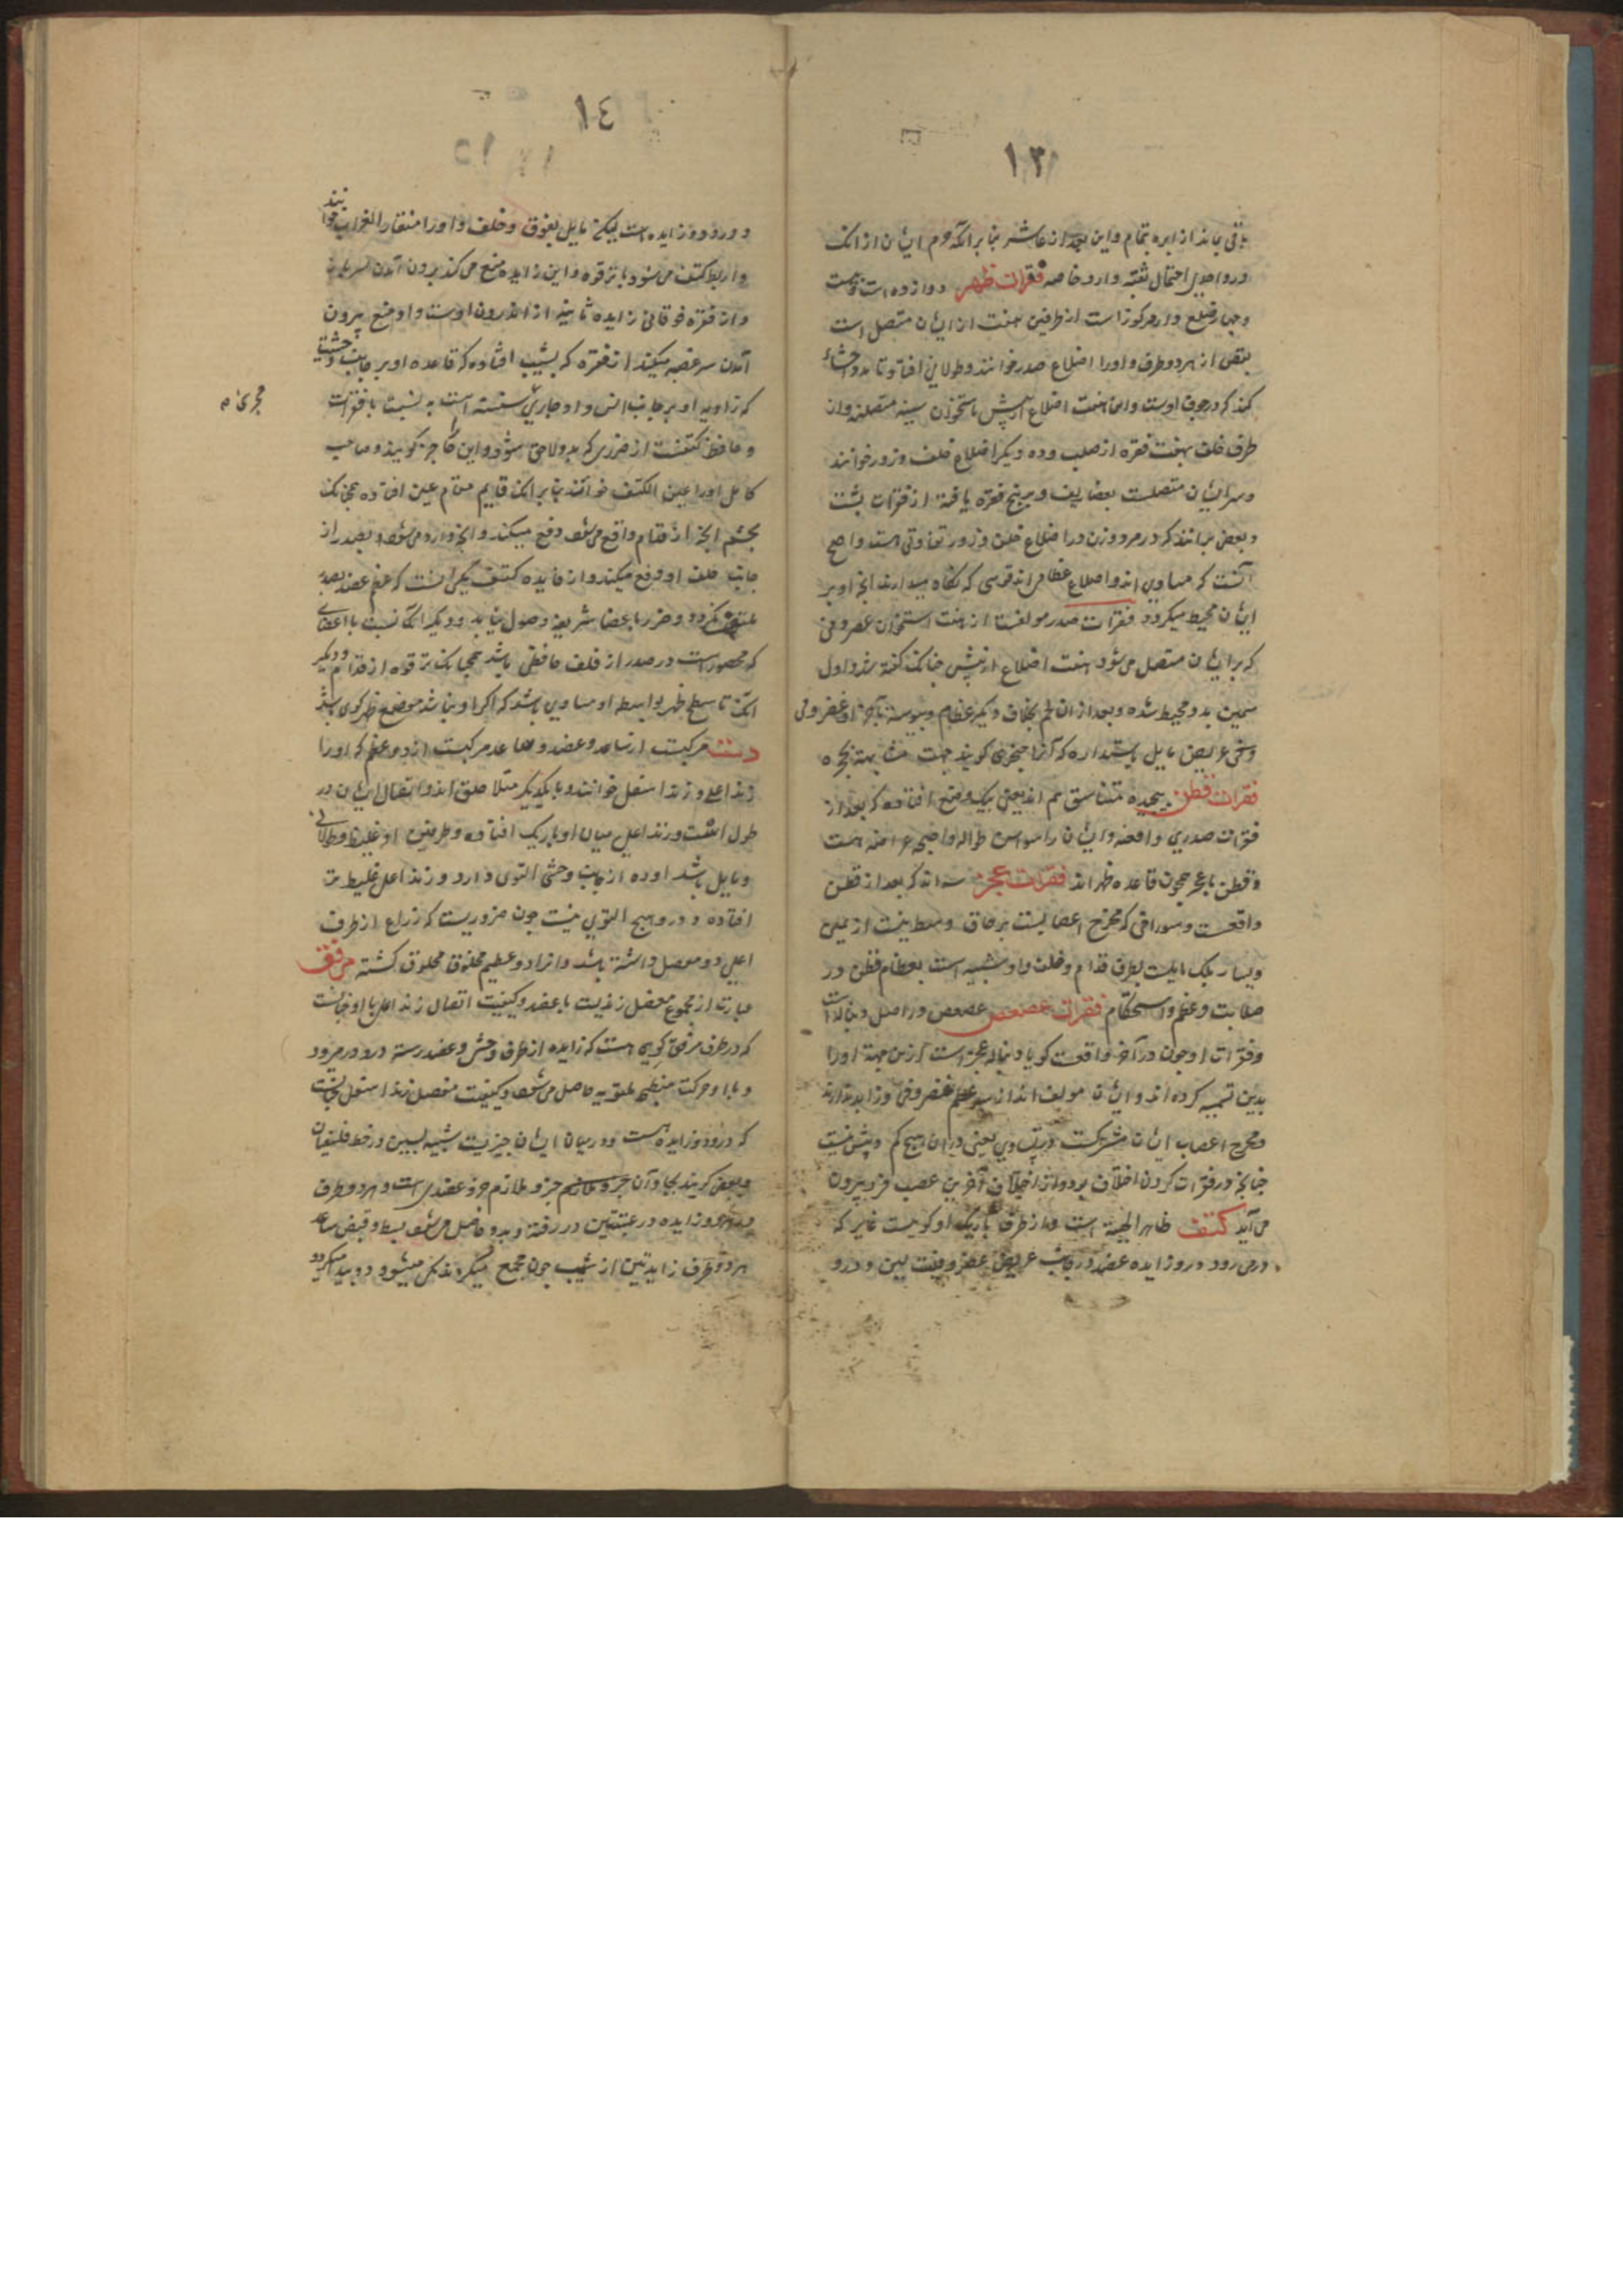 ١٣
باقی بماند از ابره بتمام و این بعد از عاشر بنا بر آنکه دم ایشان از انک
در و احتمال ثقبه دارد خاصه فقرات ظهر دوازده است و بیست
و چهار ضلع دارد مرکوز است از طرفین هفت از ایشان متصل است
بقص از هر دو طرف و اورا اضلاع صدر خوانند و طولانی افتاد تا بدو احشاء
کند که در جوف اوست و این هفت اضلاع از پیش باستخوان سینه متصلند و از
طرف خلف بهفت فقره از صلب و ده دیگر اضلاع خلف و زور خوانند
و سر ایشان متصلست بغضاریف و بر پنج فقره یافته از فقرات پشت
و بعضی برانند که در مرد و زن در اضلاع خلف و زور تفاوتی هست و اصح
آنست که مساوی اند و اضلاع عظامی اند قوسی که نگاه میدارند انچه او بر
ایشان محیط میکردد فقرات صدر مولفست از هفت استخوان غضروفی
که بر ایشان متصل می شود هفت اضلاع از پیش چنانک گفته شد و اول
سمین بدو محیط شده و بعد از ان لحم بخلاف دیگر عظام و پیوسته بآخر او غضروفی
و عریض مایل باستداره که آنرا خنجری گویند جهت مشابهت بخنجره
فقرات قطن پنجند متناسق هم اند یعنی بیک وضع افتاده که بعد از
فقرات صدری واقعند و ایشان را سناسن طواله و اجنحه عراضه هست
و قطن با عجز همچون قاعده ظهر اند فقرات عجز سه اند که بعد از قطن
واقعست و سوراخی که مخرج اعصابست بر حاق وسط نیست از یمین
و یسار بلک مایلست بطرف قدام و خلف و او شبیه است بعظام قطن در
صلابت و عظم و استحکام فقرات عصعص عصعص در اصل دنباله است
و فقرات او چون در آخر واقعست کویا دنباله عجز است ازین جهت اورا
بدین تسمیه کرده اند و ایشان مولف اند از سه عظم غضروفی و زایده ندارند
و مخرج اعصاب ایشان مشترکست در تساوی یعنی در ان هیچ کم و بیش نیست
چنانچه در فقرات کردن اختلاف بود و از آخرین عصب فرد بیرون
می آید کتف ظاهر الهیئة است و از طرف باریک او کویست غایر که
در می رود در و زایده عضد و در جانب عریض غضروفیست لین و درو
١٤
و درو دو زایده است لیکن مایل بفوق و خلف و اورا منقار الغراب خوانند
و اربط کتف می شود با ترقوه و این زایده منع می کند برون آمدن سر
و از فقره فوقانی زایده ثانیه از اندرون اوست و او منع بیرون
آمدن سر عضد میکند از نقره که بشیب افتاده که قاعده او بر جانب وحشیت
که زاویه او بر جانب انسی و او جاری سنسنه است به نسبت با فقرات
و حافظ کتفست از ضرری که بدو لاحق شود و این را حاجز گویند و صاحب
کامل اورا عین الکتف خوانند بنا بر انک قایم مقام عین افتاده همچنانک
بچشم انچه از قدام واقع می شود دفع میکند و انچه وارد می شود بصدر از
جانب خلف او دفع میکند و از فایده کتف یکی انست که عظم عضد بصدر
ملتصق نگردد و ضرر باعضا شریفه وصول نیابد و دیگر انک نسبت با اعضای
که محصور است در صدر از خلف حافظی باشد همچنانک ترقوه از قدام و دیگر
انک تا سطح ظهر بواسطه او مساوی باشد که اگر او نباشد موضع ظهر کوی باشد
دست مرکبست از ساعد و عضد و ساعد مرکبست از دو عظم که اورا
زند اعلی و زند اسفل خوانند و با یکدیگر متلاصق اند و اتصال ایشان در
طول است و زند اعلی میان او باریک افتاده و طرفین او غلیظ و طولانی
و مایل باشد او ده از جانب وحشی التوی دارد و زند اعلی غلیظ تر
افتاده و درو هیچ التوی نیست چون ضروریست که زراع از طرف
اعلی دو مفصل داشته باشد و انرا دو عظیم مخلوق گشته مرفق
عبارت از مجموع مفصل زندیست با عضد و کیفیت اتصال زند اعلی با او چنانست
که در طرف مرفق کویی هست که زایده از طرف وحشی و عضد رسته درو در میرود
و با او حرکت منبطحی ملتویه حاصل می شود و کیفیت مفصل زند اسفل چنانست
که درو دو زایده هست و در میان ایشان حیزیست شبیه بسین در خط
و بعضی گویند بجاو آن جزو ملازم جزو ملازم جزو عضدی است و هر دو طرف
و هر دو زایده در عتبتین در رفته و بدو حاصل می شود بسط و قبض ساعد
هر دو طرف زایدتین از شیب چون مجتمع میگردند میشود
مجری م